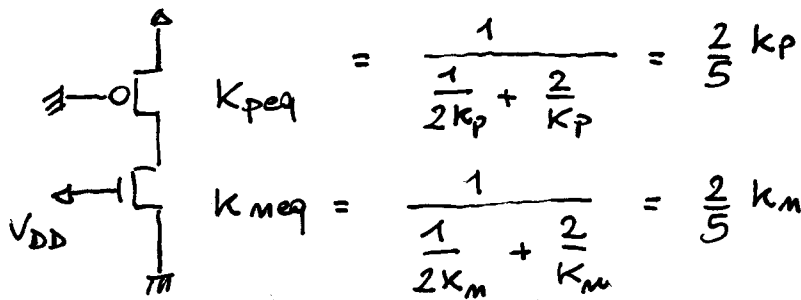 K_peq = 1 / (1/(2K_p) + 2/K_p) = 2/5 K_p
V_DD
K_neq = 1 / (1/(2K_n) + 2/K_n) = 2/5 K_n